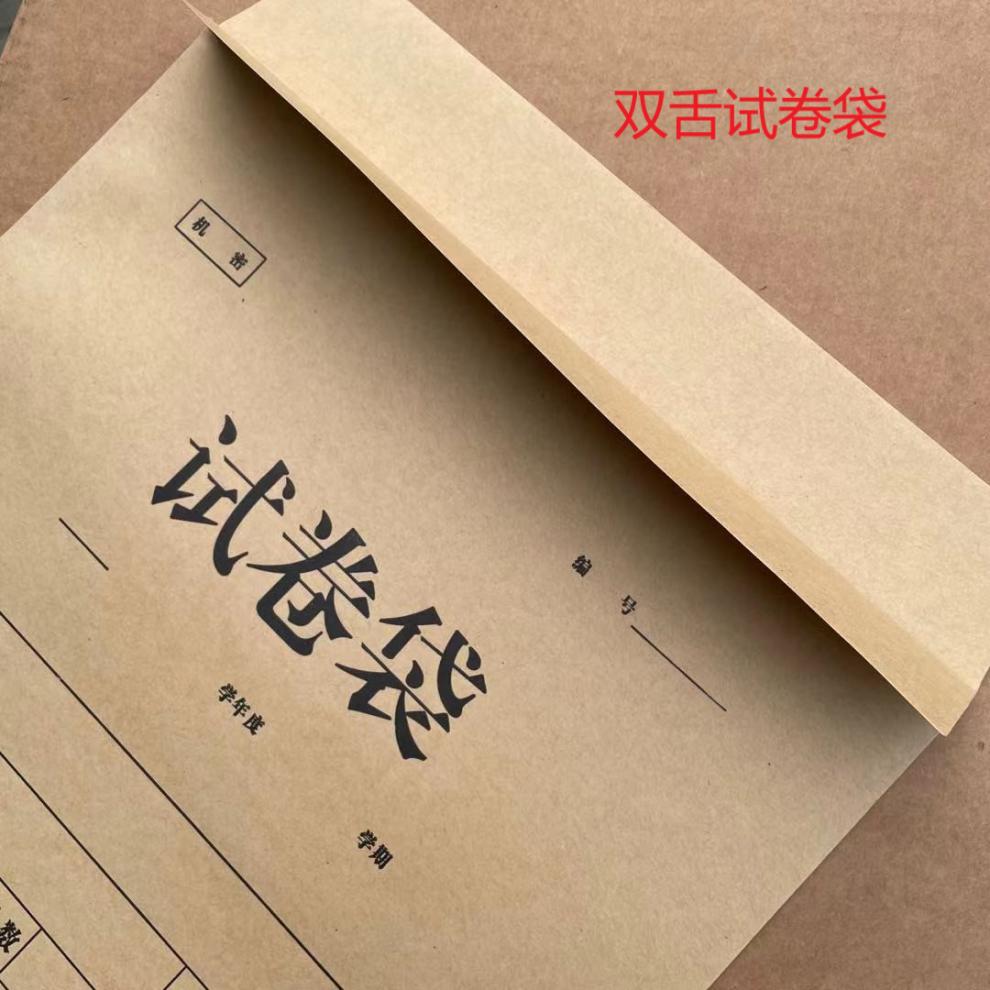 双舌试卷袋
机 密
编 号
试卷袋
学年度 学期
数